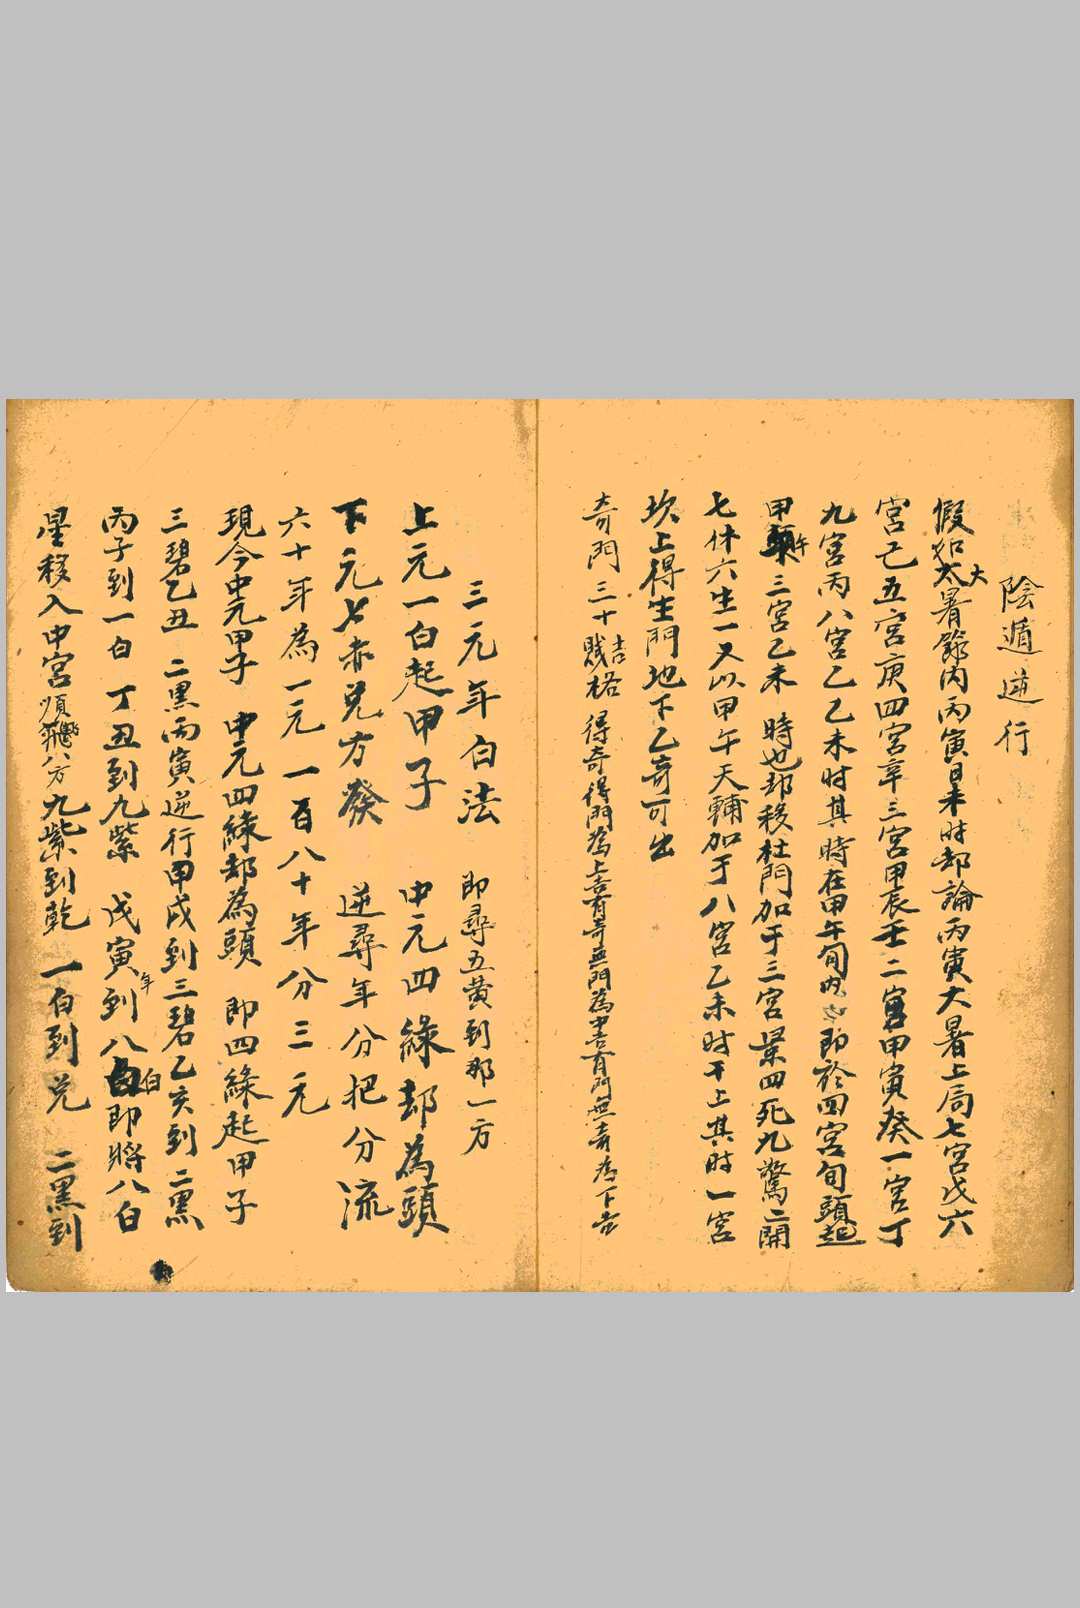 陰遁逆行
假如大暑節內丙寅日未時却論丙寅大暑上局七宮戊六
宮己五宮庚四宮辛三宮甲辰壬二宮甲寅癸一宮丁
九宮丙八宮乙乙未时其時在甲午旬內即於四宮旬頭起
甲午三宮乙未時也却移杜門加于三宮景四死九驚二開
七休六生一又以甲午天輔加于八宮乙未时干上其时一宮
坎上得生門地下乙奇可出
奇門三十吉格得奇得門為上吉有奇無門為中吉有門無奇為下吉
三元年白法 即尋五黄到那一方
上元一白起甲子 中元四綠却為頭
下元七赤兑方發 逆尋年分把分流
六十年為一元一百八十年分三元
現今中元甲子 中元四綠却為頭 即四綠起甲子
三碧乙丑 二黑丙寅逆行甲戌到三碧乙亥到二黑
丙子到一白 丁丑到九紫 戊寅年到八白即將八白
星移入中宮順飛八方九紫到乾 一白到兑 二黑到